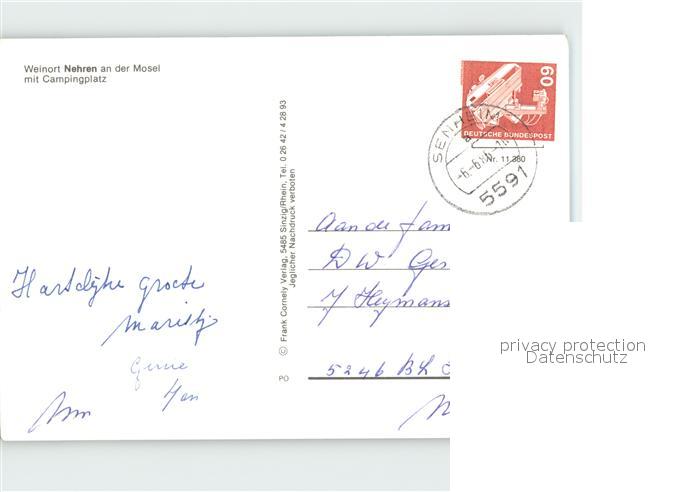 Weinort Nehren an der Mosel
mit Campingplatz
60
DEUTSCHE BUNDESPOST
SENHEIM
5591
Nr. 11.380
© Frank Cornely Verlag, 5485 Sinzig/Rhein, Tel. 0 26 42 / 4 28 93
Jeglicher Nachdruck verboten
PO
Hartelijke groeten
Marietje
Han
Aan de fam
D W Ges
J Heymans
5246 BL
privacy protection
Datenschutz